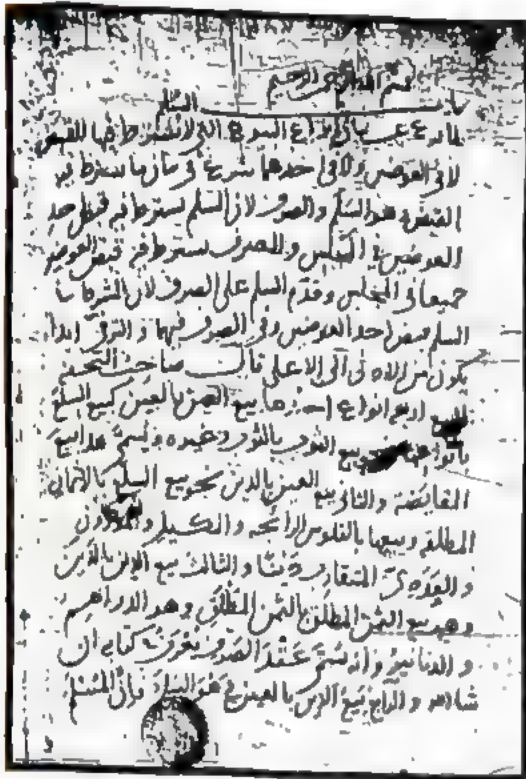 بسم الله الرحمن الرحيم
باب السلم
لما فرغ عن بيان انواع البيوع التي لا يشترط فيها القبض
لا في العوضين ولا في احدهما شرع في بيان ما يشترط فيه
القبض وهو السلم والصرف لان السلم يشترط فيه قبض احد
العوضين في المجلس والصرف يشترط فيه قبض العوضين
جميعا في المجلس وقدم السلم على الصرف لان الشرط في
السلم قبض احد العوضين وفي الصرف فيهما والترقي ابدا
يكون من الادنى الى الاعلى قال صاحب التحفة
البيع اربع انواع احدها بيع العين بالعين كبيع السلع
بيع الثوب بالثوب وغيره ويسمى هذا بيع
المقايضة والثاني بيع العين بالدين نحو بيع السلع بالاثمان
المطلقة وبيعها بالفلوس الرائجة والمكيل والموزون
والعددي المتقارب دينا والثالث بيع الدين بالدين
وهو بيع الثمن المطلق بالثمن المطلق وهو الدراهم
والدنانير وانه يسمى عقد الصرف يعرف في كتابه ان
شاء الله والرابع بيع الدين بالعين وهو السلم فان المسلم